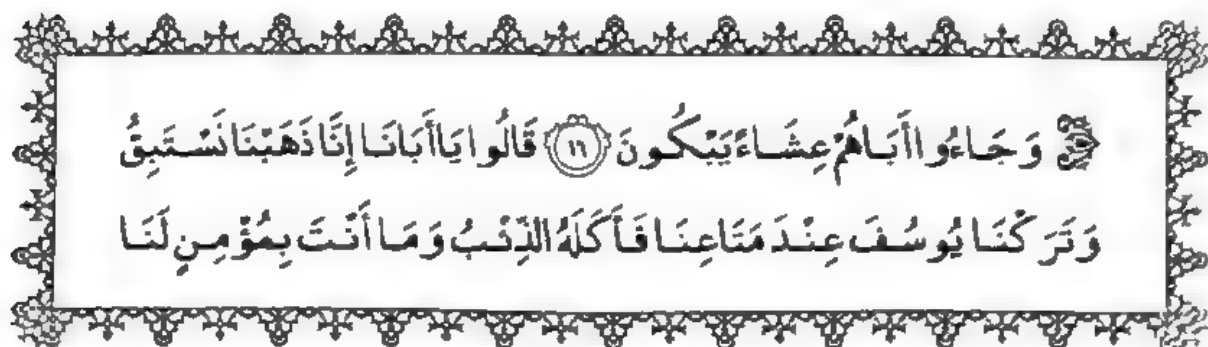 وَجَاءُوا أَبَاهُمْ عِشَاءً يَبْكُونَ ١٦ قَالُوا يَا أَبَانَا إِنَّا ذَهَبْنَا نَسْتَبِقُ
وَتَرَكْنَا يُوسُفَ عِنْدَ مَتَاعِنَا فَأَكَلَهُ الذِّئْبُ وَمَا أَنْتَ بِمُؤْمِنٍ لَنَا